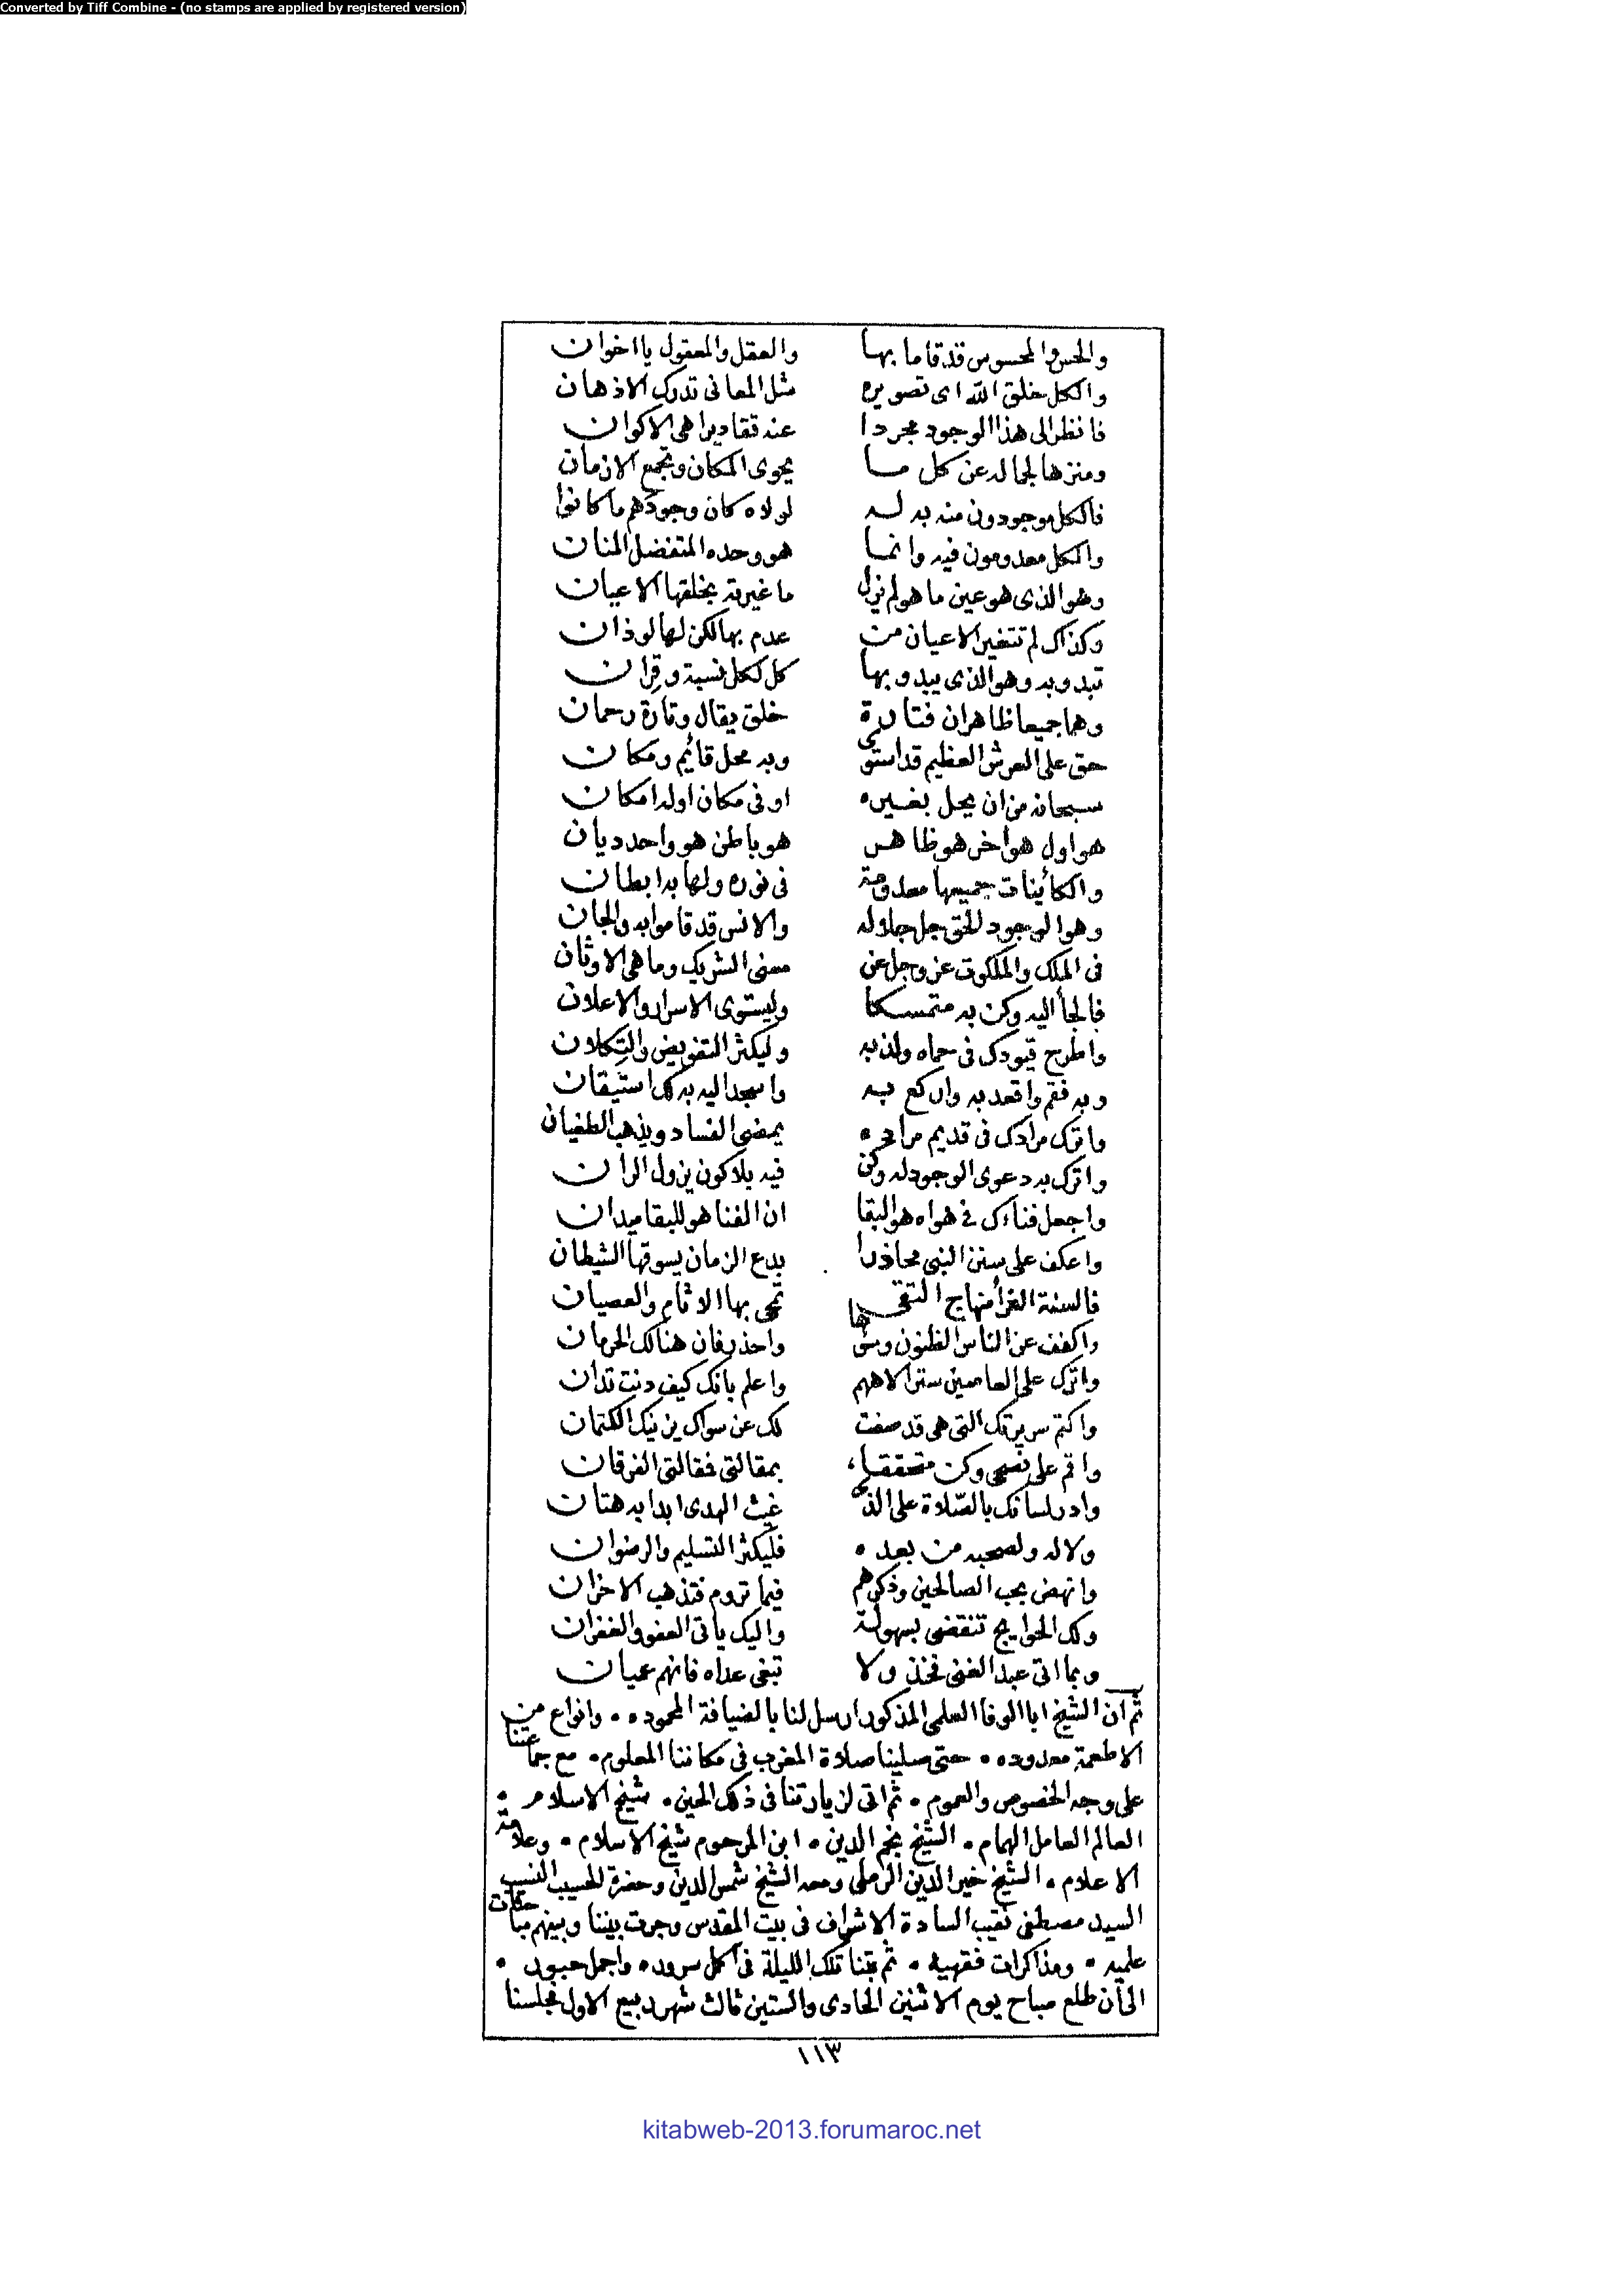 Converted by Tiff Combine - (no stamps are applied by registered version)
والحس والمحسوس قد قاما بها والعقل والمعقول يا اخوان
والكل خلق الله اى تصويره مثل المعانى تدرك الاذهان
فانظر الى هذا الوجود مجردا عند تقاديرا هى الاكوان
ومنزها لجماله عن كل ما يحوى المكان وتجمع الازمان
فالكل موجودون منه به له لولاه كان وجودهم ما كانوا
والكل معدومون فيه وانما هو وحده المتفضل المنان
وهو الذى هو عين ما هو لم نزل ما غيرته بخلقها الاعيان
وكذاك لم تتغير الاعيان من عدم بها لكن لها لوذان
تبدو به وهو الذى يبدو بها كل لكل نسبة وقران
وهما جميعا ظاهران فتارة خلق يقال وتارة رحمان
حق على العرش العظيم قد استوى وبه محل قائم ومكان
سبحانه من ان يحل بغيره او فى مكان اوله امكان
هو اول هو آخر هو ظاهر هو باطن هو واحد ديان
والكائينات جميعها معدومة فى نوره ولها بدا بطان
وهو الوجود الحق جل جلاله والانس قد قاموا به والجان
فى الملك والملكوت عز وجل عن معنى الشريك وما هى الاوثان
فالجأ اليه وكن به متمسكا وليستوى الاسرار والاعلان
واطرح قيودك فى حماه ولذ به وليكثر التفويض والتكلان
وبه فقم واقعد به واركع به واسجد اليه به كل استيقان
واترك مرادك فى قديم مراده يمضى الفساد ويذهب الطغيان
واترك به دعوى الوجود له وكن فيه بلا كون يزول الران
واجعل فناءك فى هواه هو البقا ان الفنا هو للبقا ميدان
واعكف على سنن النبى محاذرا بدع الزمان يسوقها الشيطان
فالسنة الغرأ منهاج التقى تمحى بها الاثام والعصيان
واكفف عن الناس الظنون وسوها واحذر فان هنالك الحرمان
واترك على العاصين ستر الاههم واعلم بانك كيف دنت تدان
واكتم سريرتك التى هى قد صفت لك عن سواك يزينك الكتمان
واقم على نصحى وكن متحققا بمقالتى فمقالتى الفرقان
وادر لسانك بالصّلاة على الذى غيث الهدى ابدا به هتان
ولاله ولصحبه من بعده فليكثر التسليم والرضوان
وانهض بحب الصالحين وذكرهم فيما تروم فتذهب الاحزان
ولك الحوايج تنقضى بسهولة واليك ياتى العفو والغفران
وبما اتى عبد الغنى فخذ ولا تبغى عداه فانهم عميان
ثم ان الشيخ ابا الوفا العلمى المذكور ارسل لنا بالضيافة المحموده • وانواع من
الاطعمة معدوده • حتى صلينا صلاة المغرب فى مكاننا المعلوم • مع جماعتنا
على وجه الخصوص والعموم • ثم اتى لزيارتنا فى ذلك الحين • شيخ الاسلام •
العالم العامل الهمام • الشيخ نجم الدين • ابن المرحوم شيخ الاسلام • وعلامة
الاعلام • الشيخ خير الدين الرملى ومعه الشيخ شمس الدين وحضرة الحسيب النسيب
السيد مصطفى نقيب السادة الاشراف فى بيت المقدس وجرت بيننا وبينهم مباحثات
علميه • ومذاكرات فقهية • ثم بتنا تلك الليلة فى اكمل سروره واجمل حبور •
الى أن طلع صباح يوم الاثنين الحادى والستين ثالث شهر ربيع الاول فجلسنا
١١٣
kitabweb-2013.forumaroc.net